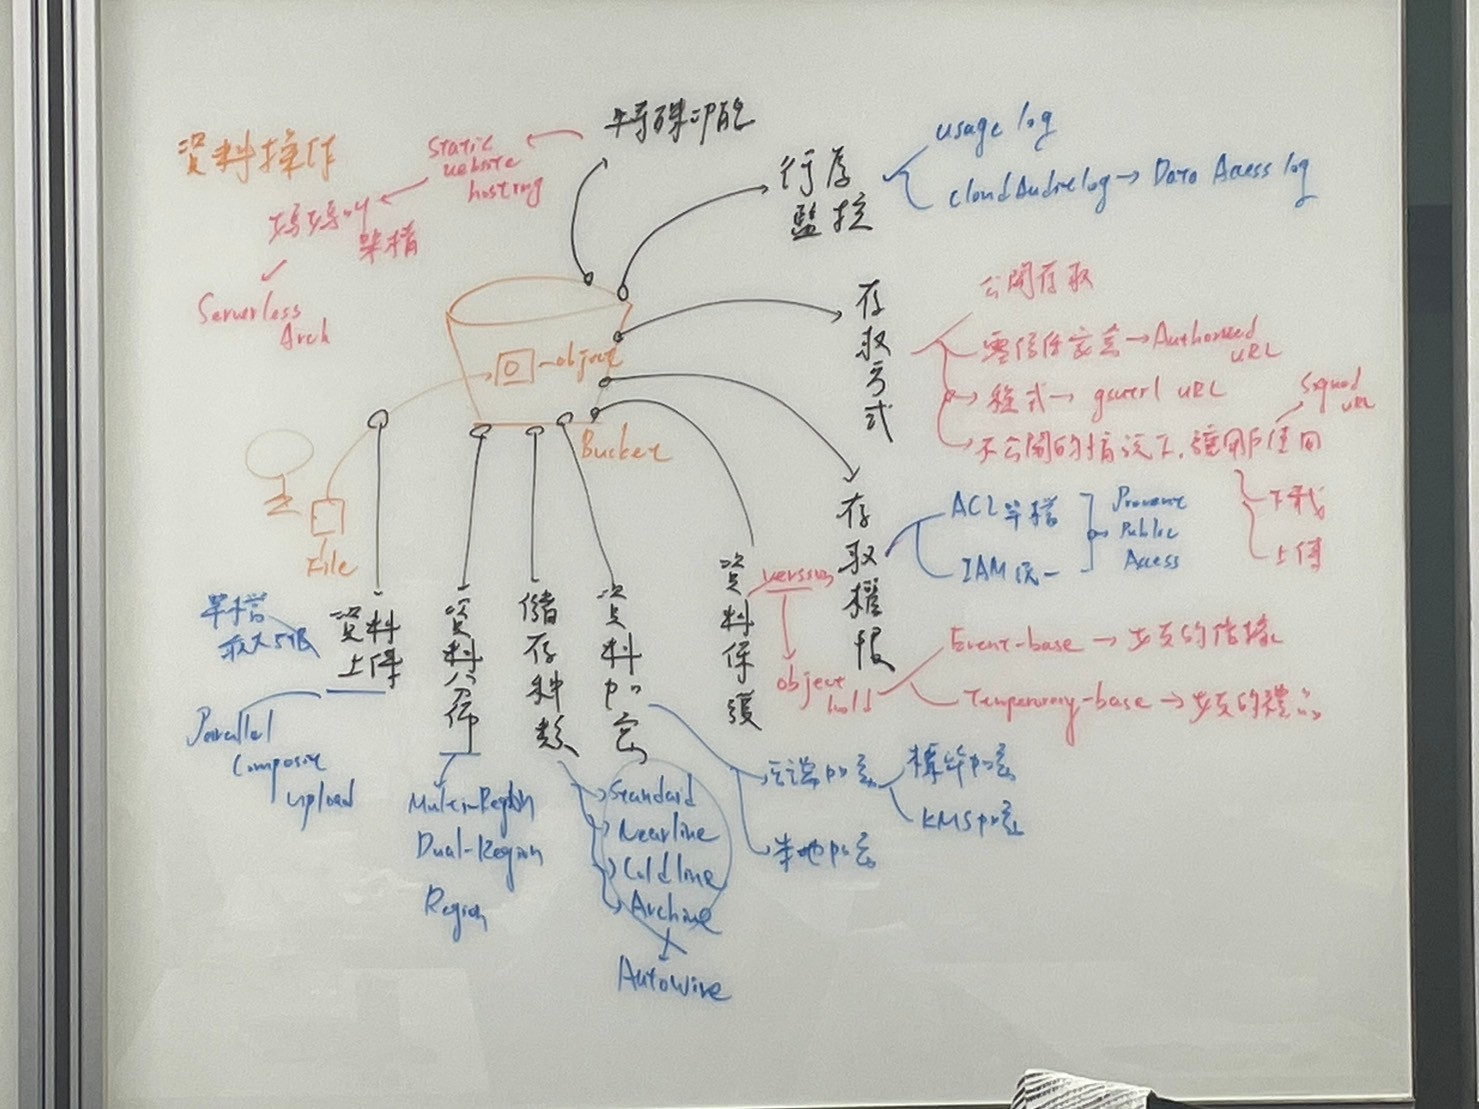 資料操作
特殊功能
Static
website
hosting
架構
Serverless
Arch
行為
監控
usage log
cloud Audit log → Data Access log
存取方式
公開存取
零信任宣言 → Authorized
URL
程式 → gsutil URL
不公開的情況下,讓用戶使用
Signed
URL
下載
上傳
object
Bucket
File
存取權限
ACL 單檔
IAM 統一
Prevent
Public
Access
資料上傳
單檔
最大5TB
Parallel
Composite
upload
資料分佈
Multi-Region
Dual-Region
Region
儲存種類
Standard
Nearline
Coldline
Archive
資料加密
雲端加密
標準加密
KMS加密
本地加密
資料保護
version
object
hold
Event-base →
Temporary-base →